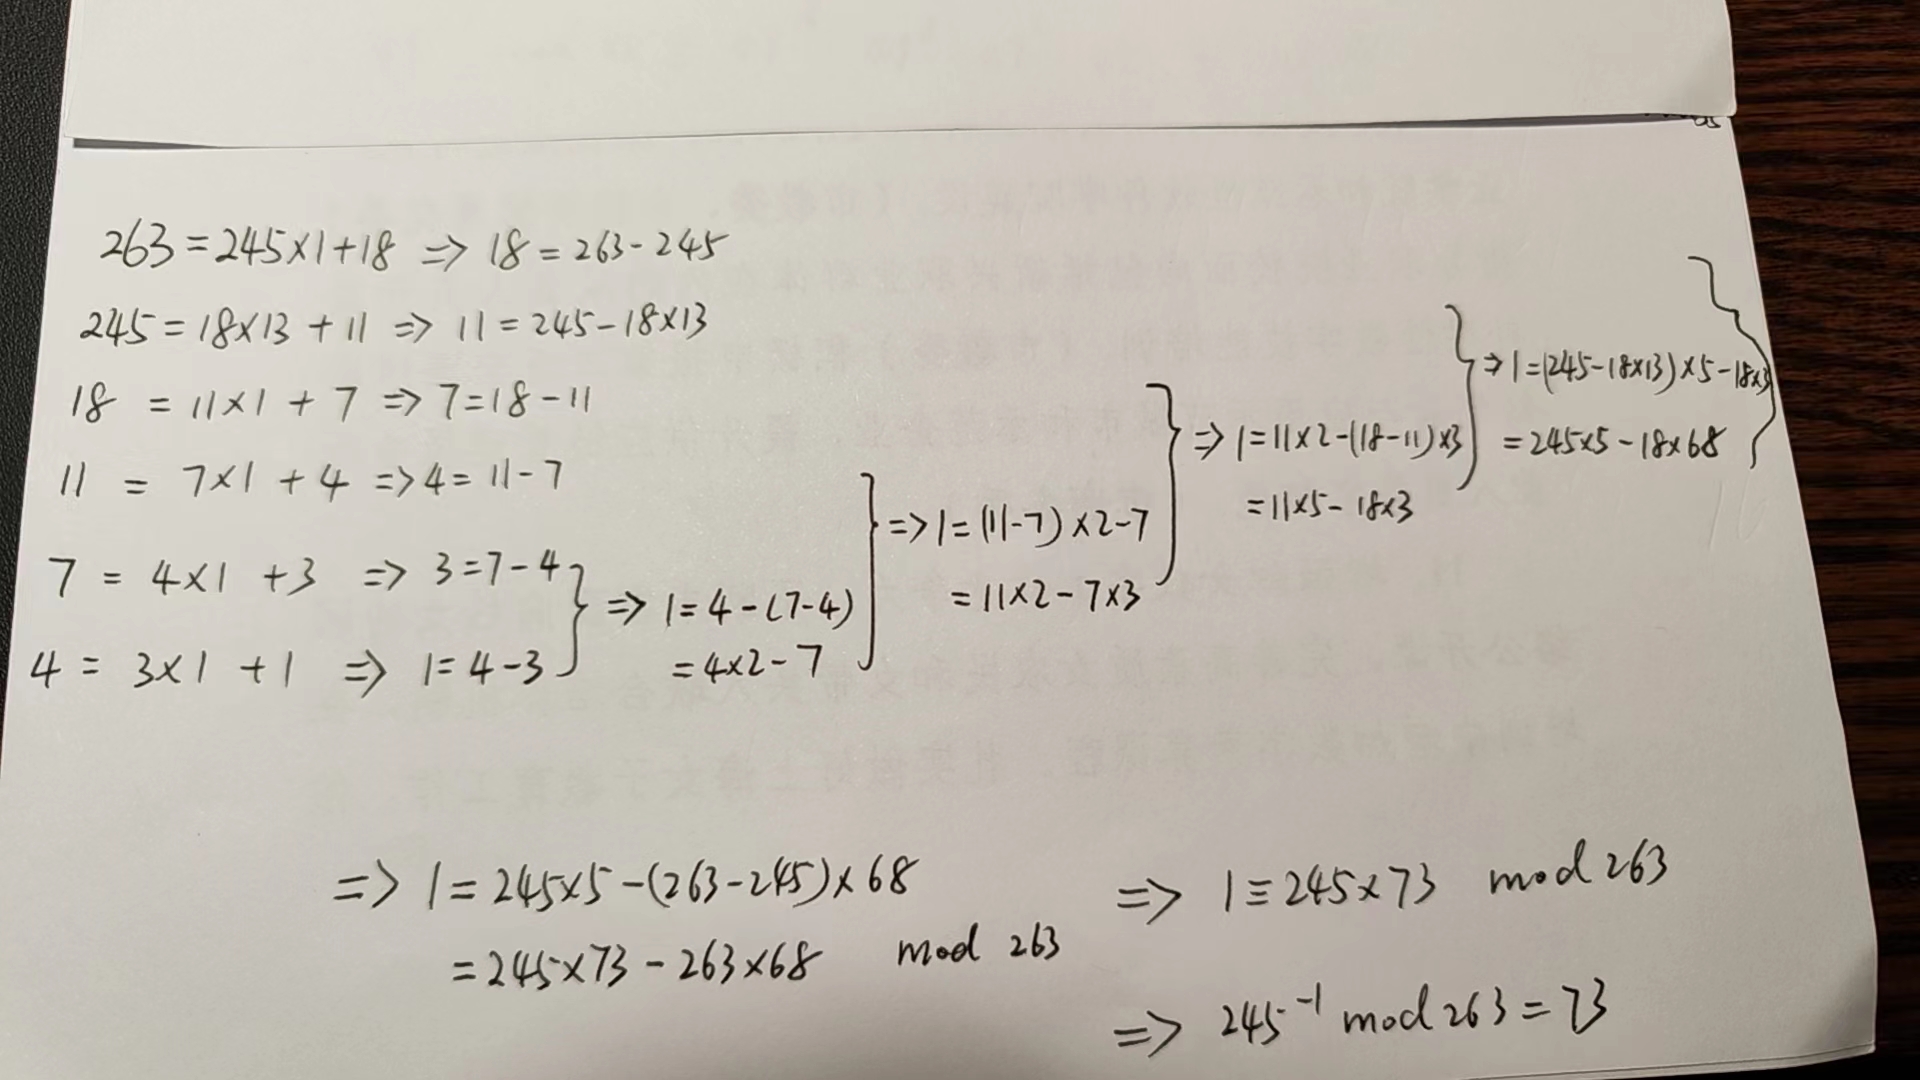 263=245×1+18 => 18=263-245
245=18×13+11 => 11=245-18×13
18 = 11×1+7 => 7=18-11
11 = 7×1+4 => 4=11-7
7 = 4×1+3 => 3=7-4
4 = 3×1+1 => 1=4-3
=> 1=4-(7-4)
=4×2-7
=> 1=(11-7)×2-7
=11×2-7×3
=> 1=11×2-(18-11)×3
=11×5-18×3
=> 1=(245-18×13)×5-18×3
=245×5-18×68
=> 1=245×5-(263-245)×68
=245×73-263×68 mod 263
=> 1≡245×73 mod 263
=> 245⁻¹ mod 263=73